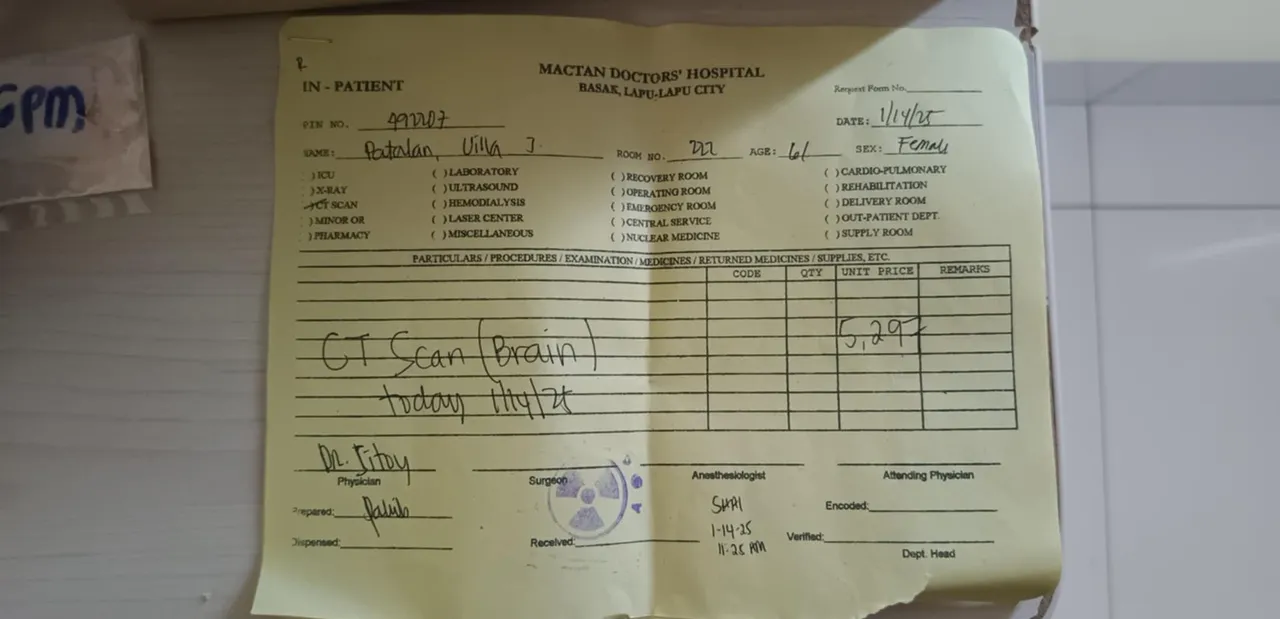 6PM
R
MACTAN DOCTORS' HOSPITAL
BASAK, LAPU-LAPU CITY
IN - PATIENT
Request Form No.
PIN NO. 492207
DATE: 1/14/25
NAME: Patalan, Villa J.
ROOM NO. 222 AGE: 61 SEX: Female
( )ICU ( )LABORATORY ( )RECOVERY ROOM ( )CARDIO-PULMONARY
( )X-RAY ( )ULTRASOUND ( )OPERATING ROOM ( )REHABILITATION
( )CT SCAN ( )HEMODIALYSIS ( )EMERGENCY ROOM ( )DELIVERY ROOM
( )MINOR OR ( )LASER CENTER ( )CENTRAL SERVICE ( )OUT-PATIENT DEPT.
( )PHARMACY ( )MISCELLANEOUS ( )NUCLEAR MEDICINE ( )SUPPLY ROOM
PARTICULARS / PROCEDURES / EXAMINATION / MEDICINES / RETURNED MEDICINES / SUPPLIES, ETC.
CODE QTY UNIT PRICE REMARKS
CT Scan (Brain) 5,297
today 1/14/25
Dr. Jitoy
Physician Surgeon Anesthesiologist Attending Physician
Prepared: Encoded:
1-14-25
Dispensed: Received: 11:25 PM Verified:
Dept. Head